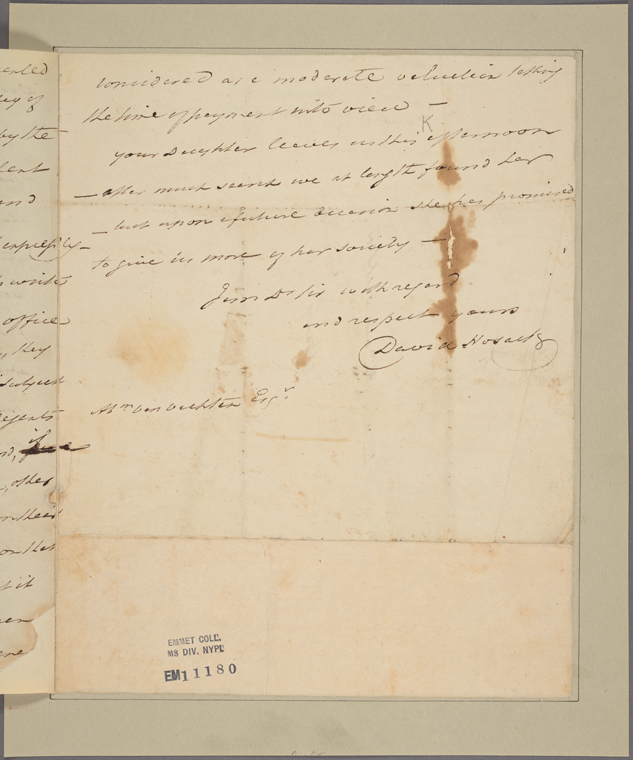 ented
by the
lent
and
expressly
write
office
, they
subject
regents
if
, other
on their
or that
t it
considered as a moderate valuation taking
the time of payment into view —
K
your Daughter leaves us this afternoon
— after much search we at length found her
— but upon a future occasion she has promised
to give us more of her society —
I am Dr Sir with regard
and respect yours
David Hosack
Abm Van Vechten Esqr
EMMET COLL.
MS DIV. NYPL
EM11180